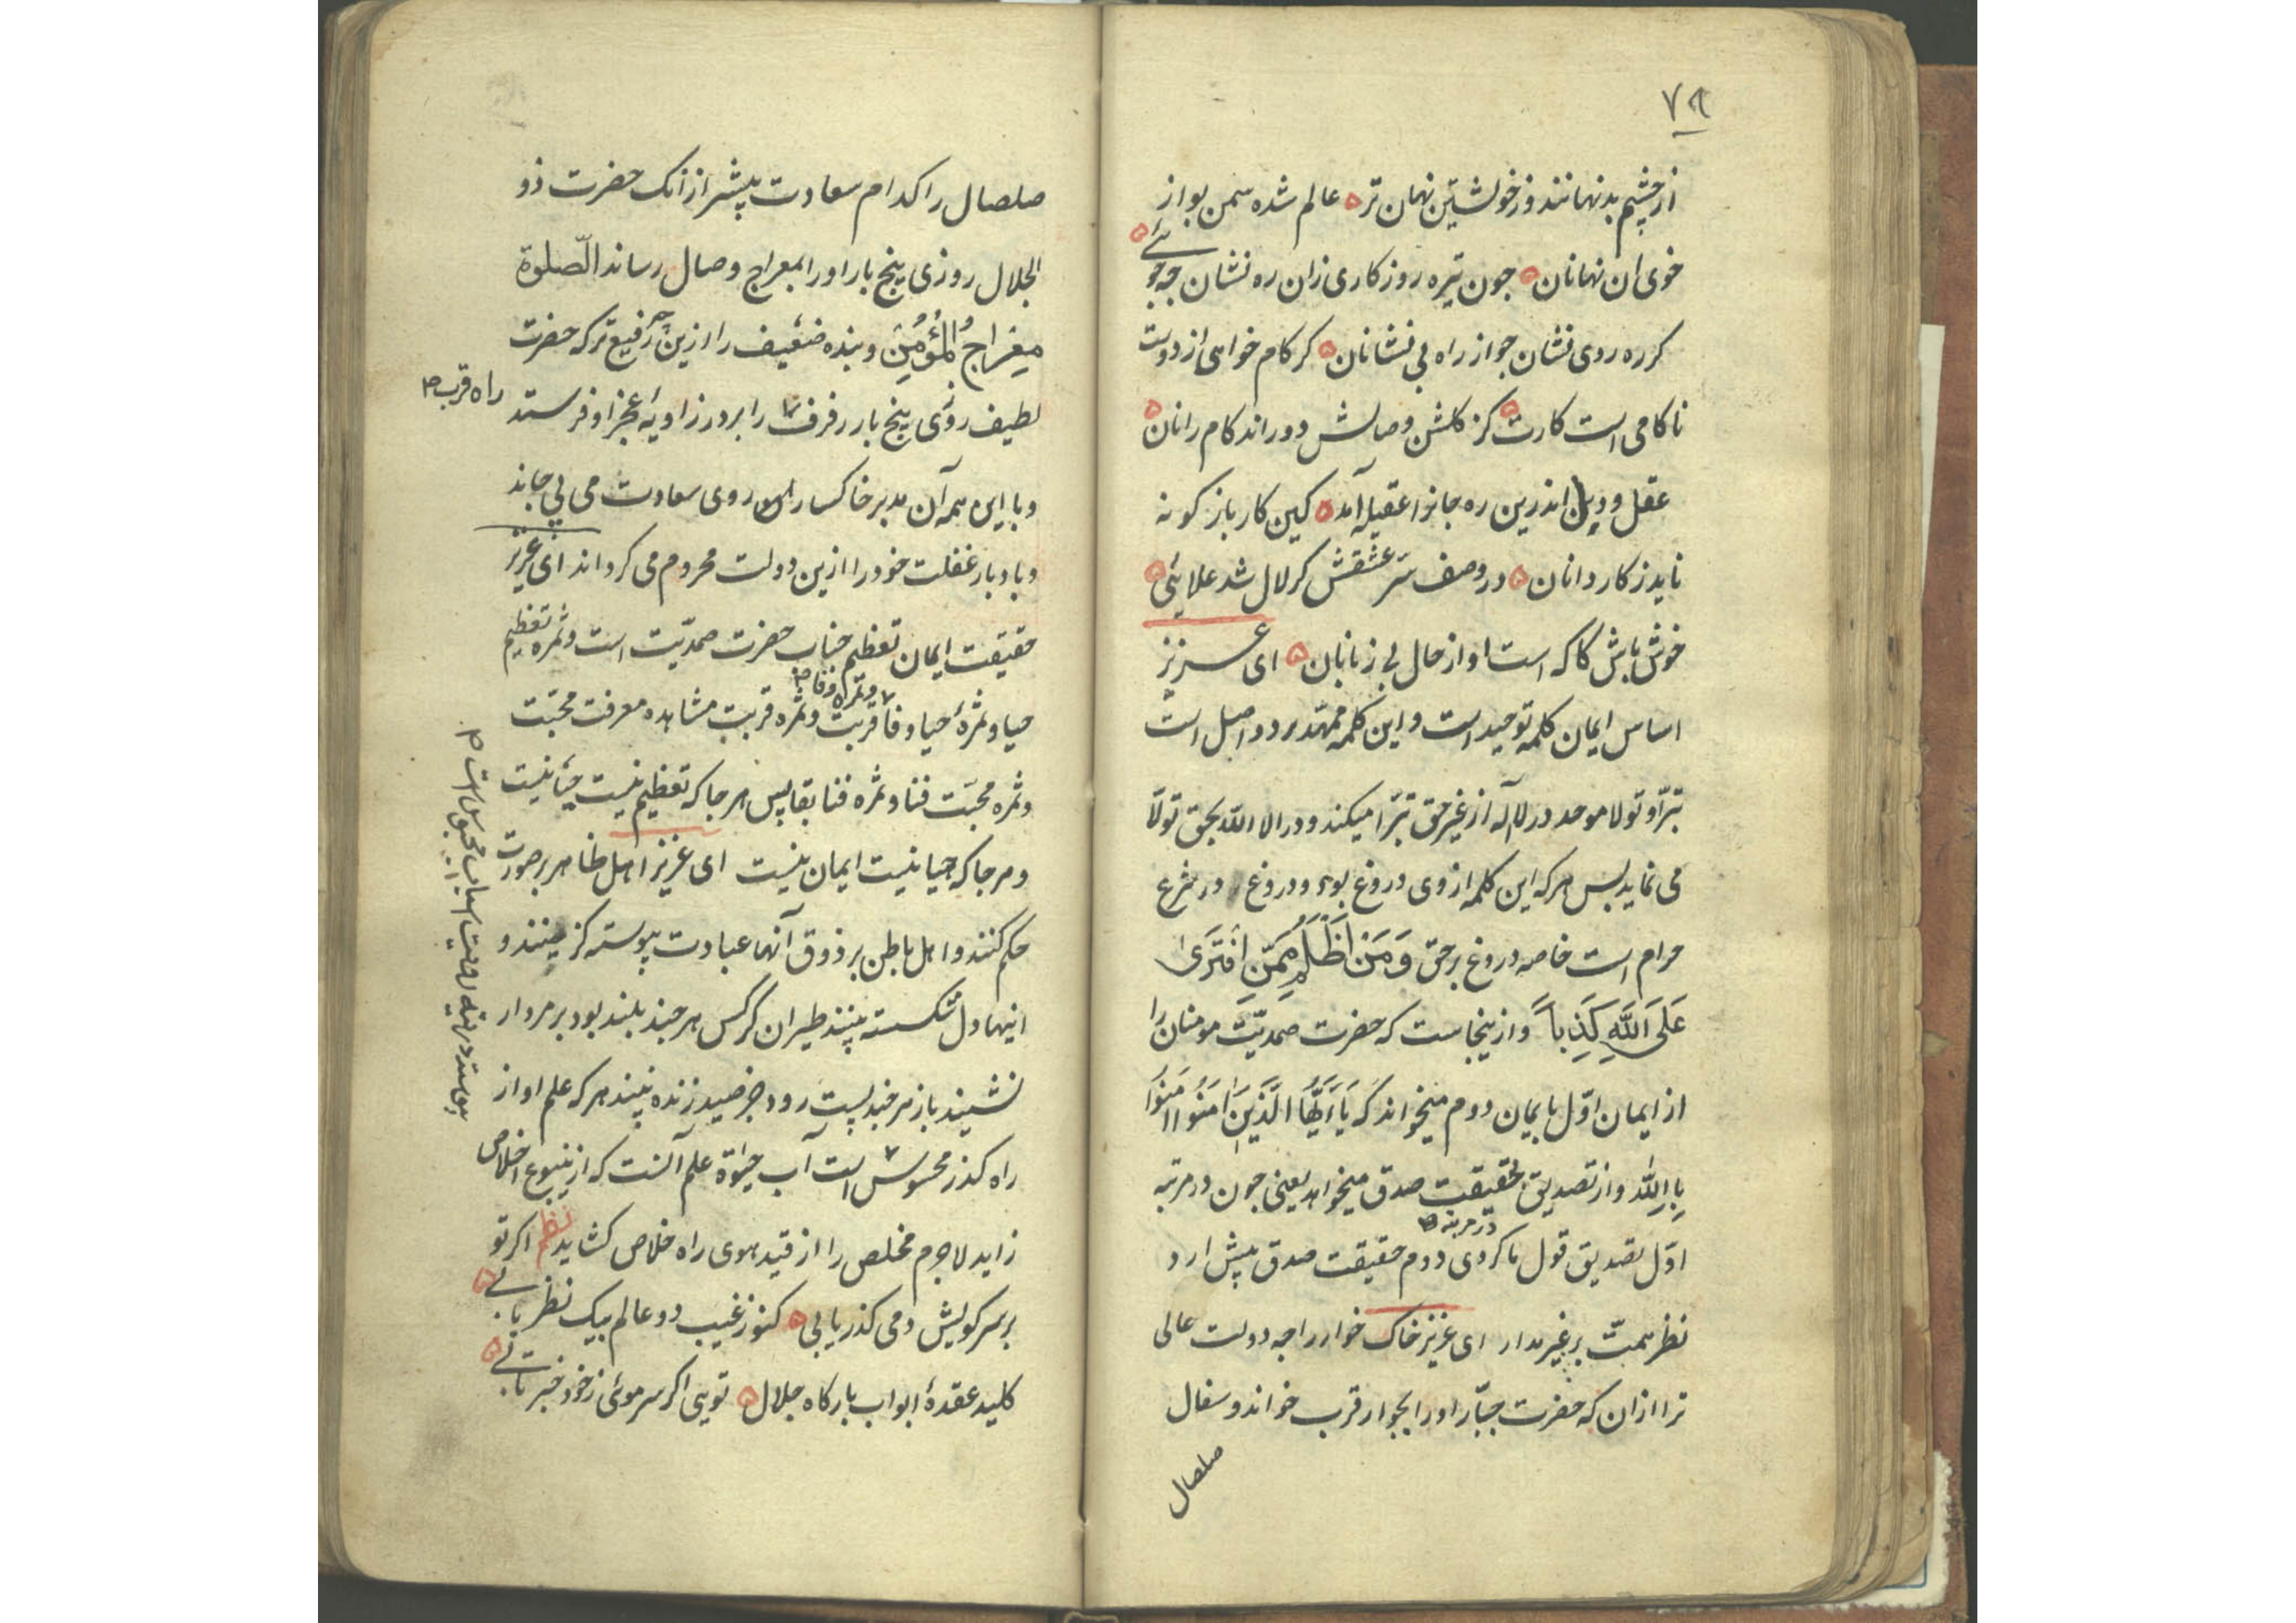 ٧٩
از چشم بد نهانند وز خویشتن نهان تر عالم شده سمن بو از
خوی ان نهانان جون تیره روزکاری زان ره نشان جه جوئی
کر ره روی نشان جو از راه بی نشانان کر کام خواهی از دوست
ناکامی است کارت کز کلشن وصالش دوراند کام رانان
عقل و دین اندرین ره جانرا عقیله آمد کین کار باز کونه
ناید ز کاردانان در وصف سر عشقش کر لال شد علائی
خوش باش کاکه است او از حال بی زبانان ای عزیز
اساس ایمان کلمه توحید است و این کلمه ممهد بر دو اصل است
تبرّا و تولا موحد در لا آله از غیر حق تبرّا میکند و در الا الله بحق تولّا
می نماید بس هر که این کلمه از وی دروغ بود و دروغ در شرع
حرام است خاصه دروغ بر حق وَمَنْ اَظْلَمُ مِمَّنِ افْتَرَی
عَلَی اللّٰهِ کَذِباً و از ینجاست که حضرت صمدیّت مومنان را
از ایمان اوّل بایمان دوم میخواند که یَا اَیُّهَا الَّذِینَ اٰمَنُوا اٰمِنُوا
بِاللّٰه و از تصدیق بحقیقت صدق میخواهد یعنی جون در مرتبه
اوّل تصدیق قول ما کردی در مرتبه دوم حقیقت صدق پیش ار و
نظر همت بر غیر مدار ای عزیز خاک خوار را جه دولت عالی
ترا ازان که حضرت جبّار اورا بجوار قرب خواند و سفال
صلصال
صلصال را کدام سعادت پیشتر از انک حضرت ذو
الجلال روزی پنج بار اورا بمعراج وصال رساند الصّلوة
مِعْرَاجُ الْمُؤْمِنِ و بنده ضعیف را ازین جه رفیع تر که حضرت
لطیف روزی پنج بار رفرف راه قرب را بر در زاویهٔ عجز او فرستد
و با این همه آن مدبر خاکسار روی سعادت می پیچاند
و بادبار غفلت خود را ازین دولت محروم می کرداند ای عزیز
حقیقت ایمان تعظیم جناب حضرت صمدیّت است و ثمره تعظیم
حیا و ثمرهٔ حیا وفا و ثمره وفا قربت و ثمره قربت مشاهده معرفت محبّت
و ثمره محبّت فنا و ثمره فنا بقا پس هر جا که تعظیم نیست حیا نیست
و هر جا که حیا نیست ایمان نیست ای عزیز اهل ظاهر بر صورت
حکم کنند و اهل باطن بر ذوق آنها عبادت پیوسته کزینند و
اینها دل شکسته بینند طیران کرکس هر جند بلند بود بر مردار
نشیند باز هر جند پست رود جز صید زنده نبیند هر که علم او از
راه کذر محسوس است آب حیوة علم آنست که از ینبوع اخلاص
زاید لاجرم مخلص را از قید هوی راه خلاص کشاید نظم اکر تو
بر سر کویش دمی کذر یابی کنوز غیب دو عالم بیک نظر یابی
کلید عقدهٔ ابواب بارکاه جلال تویی اکر سر موئی ز خود خبر یابی